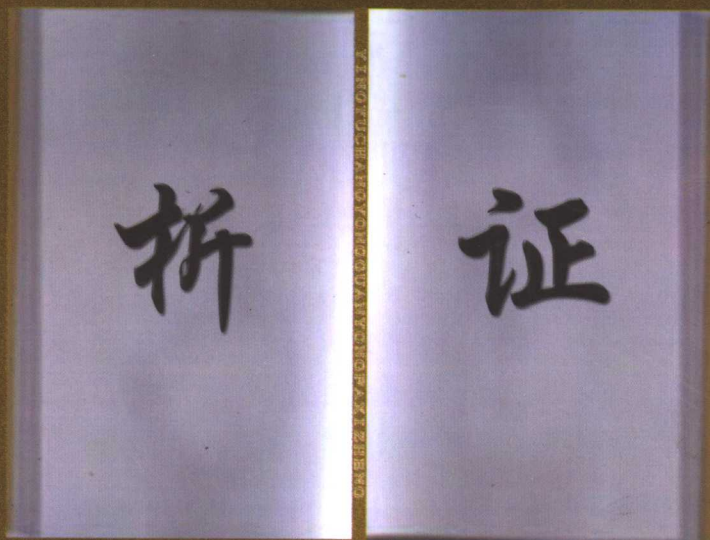 析 证
YINGYUCHANGYONGGUANYONGFAXIZHENG